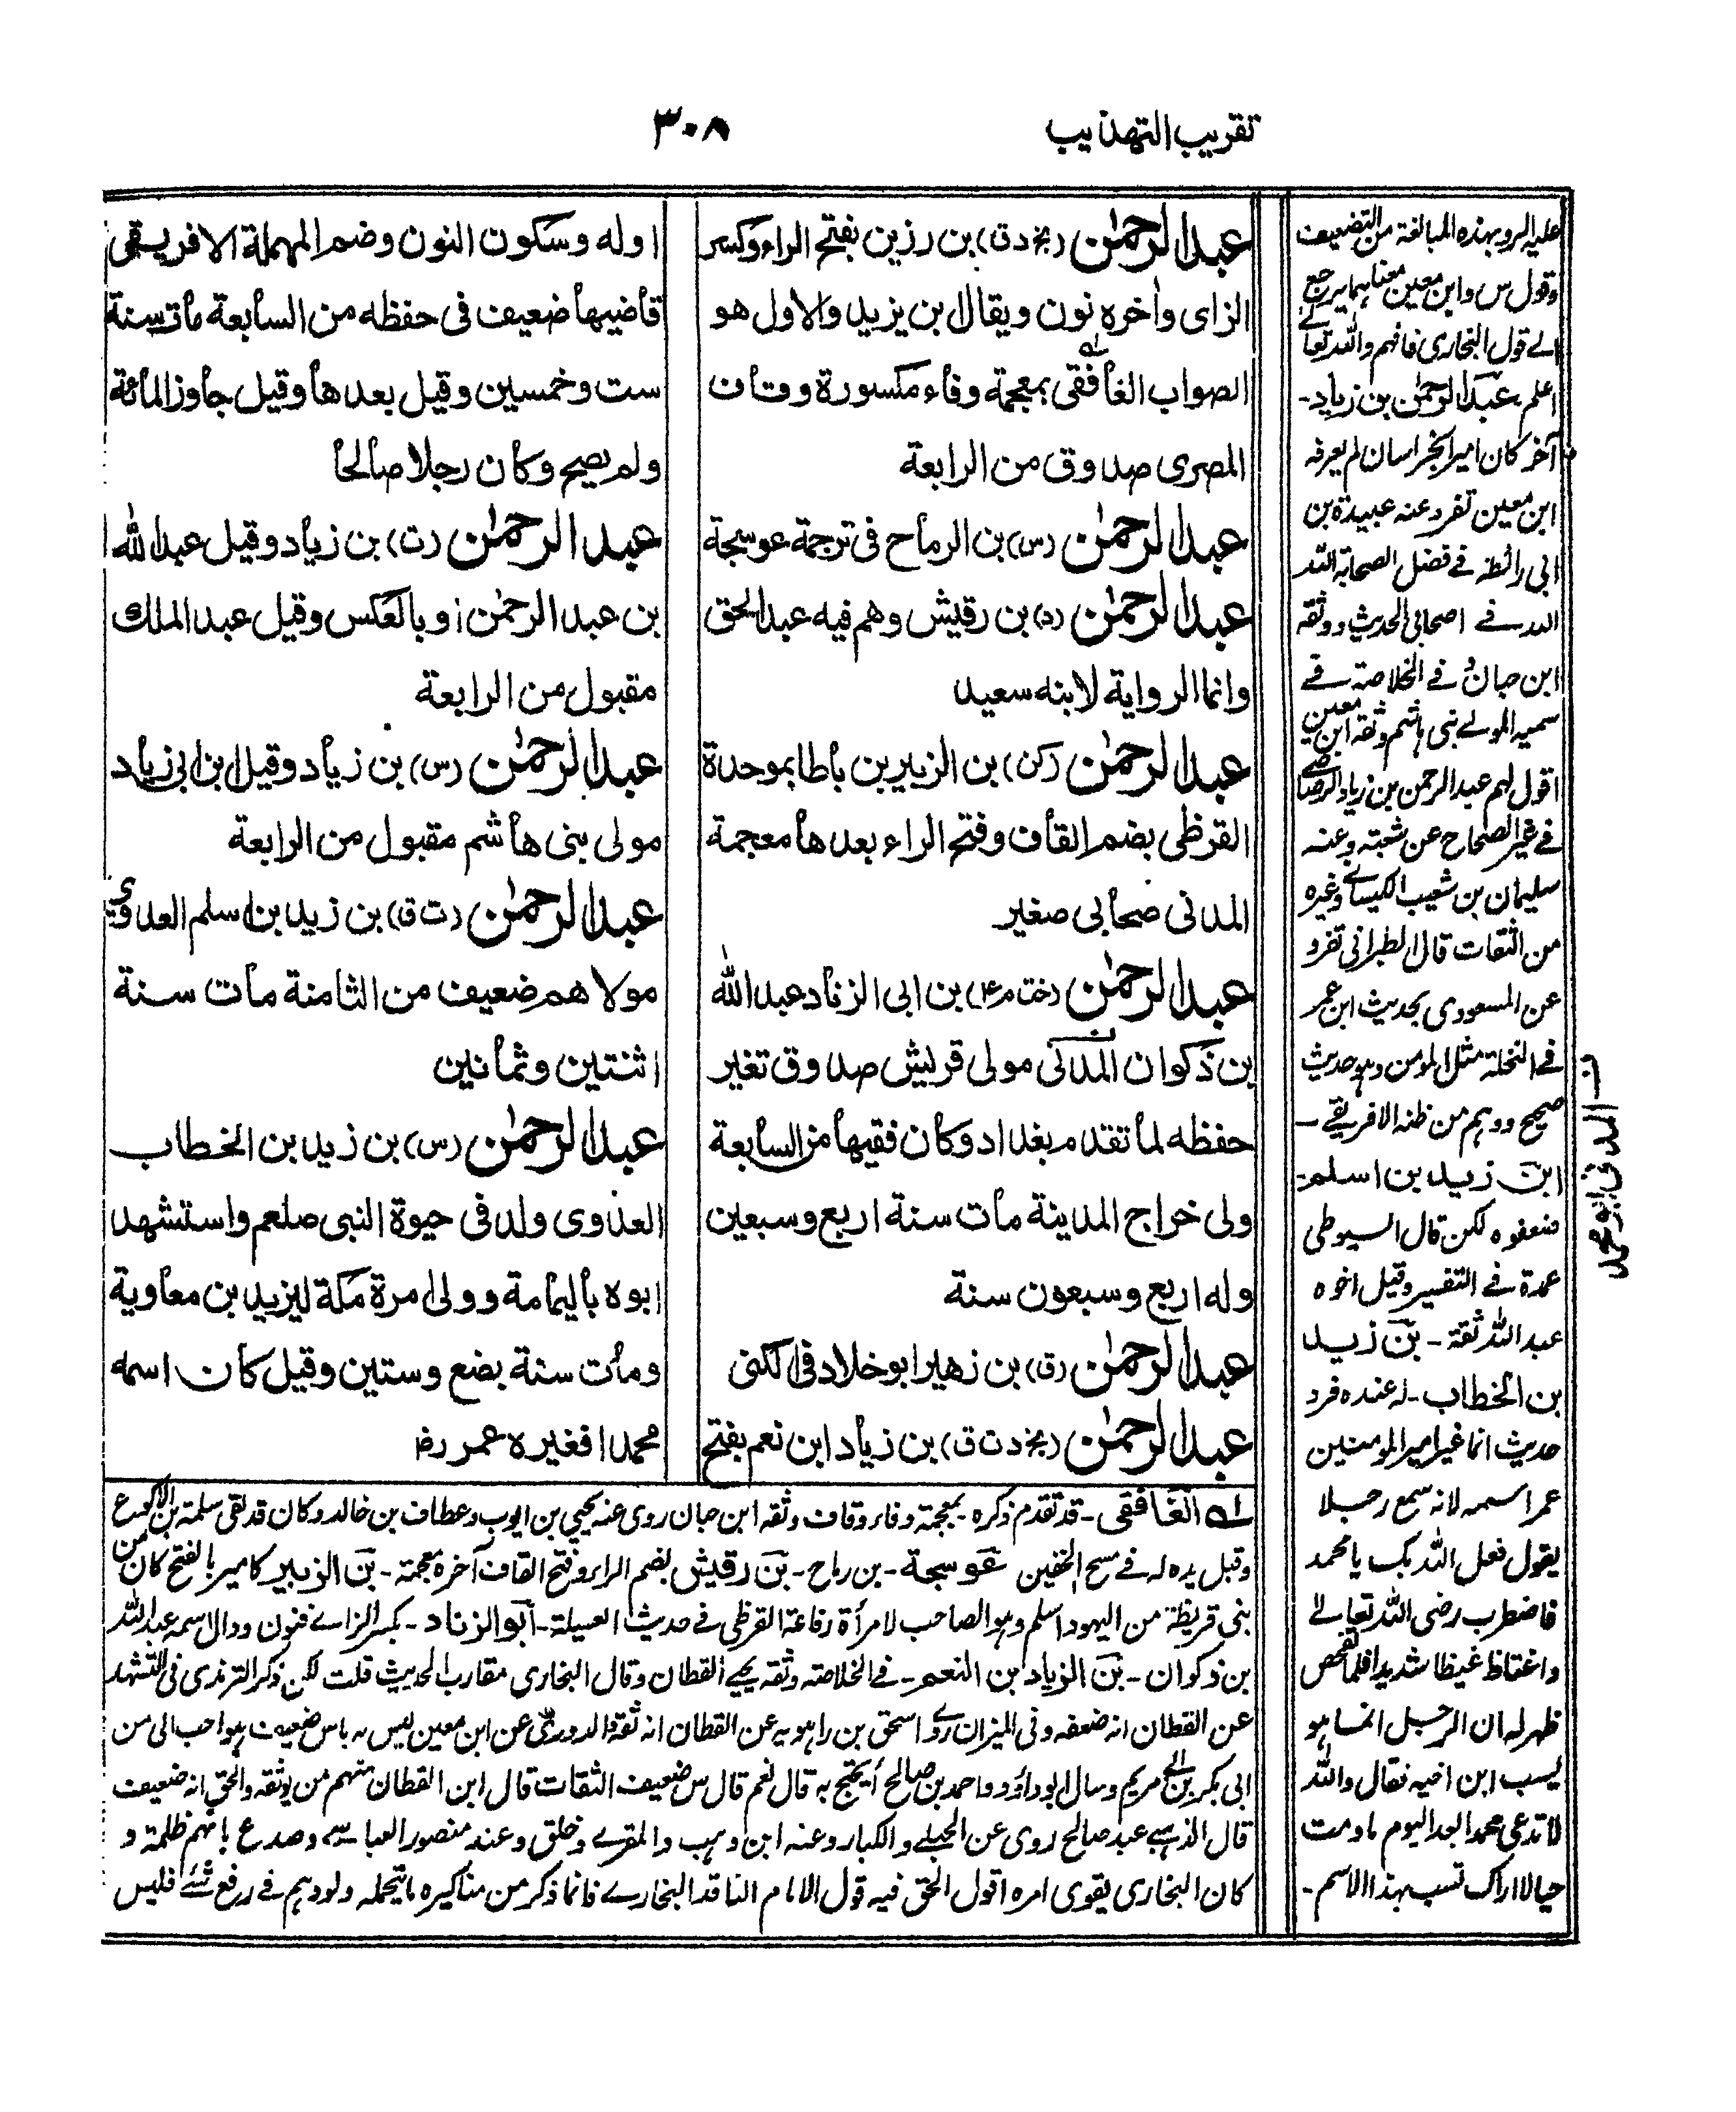 تقريب التهذيب
٣٠٨
عبد الرحمٰن (بخ د ق) بن رزين بفتح الراء وكسر
الزاى واٰخره نون ويقال بن يزيد والاول هو
الصواب الغافقى بمعجمة وفاء مكسورة وقاف
المصرى صدوق من الرابعة
عبد الرحمٰن (س) بن الرماح فى ترجمة عوسجة
عبد الرحمٰن (د) بن رقيش وهم فيه عبد الحق
وانما الرواية لابنه سعيد
عبد الرحمٰن (كن) بن الزبير بن باطا بموحدة
القرظى بضم القاف وفتح الراء بعدها معجمة
المدنى صحابى صغير
عبد الرحمٰن (خت م ۴) بن ابى الزناد عبد الله
بن ذكوان المدنى مولى قريش صدوق تغير
حفظه لما تقدم بغداد وكان فقيها من السابعة
ولى خراج المدينة مات سنة اربع وسبعين
وله اربع وسبعون سنة
عبد الرحمٰن (ق) بن زهير ابو خلاد فى الكنى
عبد الرحمٰن (بخ د ت ق) بن زياد ابن نعم بفتح
اوله وسكون النون وضم المهملة الافريقى
قاضيها ضعيف فى حفظه من السابعة مات سنة
ست وخمسين وقيل بعدها وقيل جاوز المائة
ولم يصح وكان رجلا صالحا
عبد الرحمٰن (ت) بن زياد وقيل عبد الله
بن عبد الرحمٰن او بالعكس وقيل عبد الملك
مقبول من الرابعة
عبد الرحمٰن (س) بن زياد وقيل ابن ابى زياد
مولى بنى هاشم مقبول من الرابعة
عبد الرحمٰن (ت ق) بن زيد بن اسلم العدوى
مولاهم ضعيف من الثامنة مات سنة
اثنتين وثمانين
عبد الرحمٰن (س) بن زيد بن الخطاب
العدوى ولد فى حيوة النبى صلعم واستشهد
ابوه باليمامة وولى امرة مكة ليزيد بن معاوية
ومات سنة بضع وستين وقيل كان اسمه
محمدا فغيره عمر رض
له الغافقى - قد تقدم ذكره - بمعجمة وفاء وقاف وثقه ابن حبان روى عنه يحيى بن ايوب وعطاف بن خالد وكان قد لقى سلمة بن الاكوع
وقبل يده له فى مسح الخفين عوسجة - بن رماح - بن رقيش بضم الراء وفتح القاف آخره معجمة - بن الزبير كامير بالفتح كان من
بنى قريظة من اليهود اسلم وهو الصاحب لامرأة رفاعة القرظى فى حديث العسيلة - ابو الزناد - بكسر الزاى فنون ودال اسمه عبد الله
بن ذكوان - بن الزياد بن النعم - فى الخلاصة وثقه يحيى القطان وقال البخارى مقارب الحديث قلت لكن ذكر الترمذى فى التشهد
عن القطان انه ضعفه وفى الميزان روى اسحق بن راهويه عن القطان انه ثقة والدورى عن ابن معين ليس به باس ضعيف هو احب الى من
ابى بكر بن ابى مريم وسال ابو داؤد احمد بن صالح أيحتج به قال نعم قال س ضعيف الثقات قال ابن القطان منهم من يوثقه والحق انه ضعيف
قال الذهبى عبد صالح روى عن الحبلى والكبار وعنه ابن وهب والمقرى وخلق وعند منصور العباسى وصدع بانهم ظلمة و
كان البخارى يقوى امره اقول الحق فيه قول الامام الناقد البخارى فانما ذكر من مناكيره ما يتحمله ولو وهم فى رفع شئ فليس
عليه الرد بهذه المبالغة من التضعيف
وقول س وابن معين معناهما يرجع
الى قول البخارى فافهم والله تعالى
اعلم - عبد الرحمٰن بن زياد -
آخر كان امير الخراسان لم يعرفه
ابن معين تفرد عنه عبيدة بن
ابى رائطة فى فضل الصحابة الله
الله فى اصحابى الحديث ووثقه
ابن حبان و فى الخلاصة فى
سميه المولى بنى هاشم وثقه ابن معين
اقول لهم عبد الرحمن بن زياد الرصاصى
فى غير الصحاح عن شعبة وعنه
سليمان بن شعيب الكيسانى وغيره
من الثقات قال الطبرانى تفرد
عن المسعودى بحديث ابن عمر
فى النخلة مثل المومن وهو حديث
صحيح ووهم من ظنه الافريقى -
ابن زيد بن اسلم -
ضعفوه لكن قال السيوطى
عمدة فى التفسير وقيل اخوه
عبد الله ثقة - بن زيد
بن الخطاب - له عنده فرد
حديث انما غير امير المومنين
عمر اسمه لانه سمع رجلا
يقول فعل الله بك يا محمد
فاضطرب رضى الله تعالى
واغتاظ غيظا شديدا فلما تفحص
ظهر له ان الرجل انما هو
يسب ابن اخيه فقال والله
لا تدعى محمدا بعد اليوم ما دمت
حيا لا اراك تسب بهذا الاسم -
المدنى ابو محمد